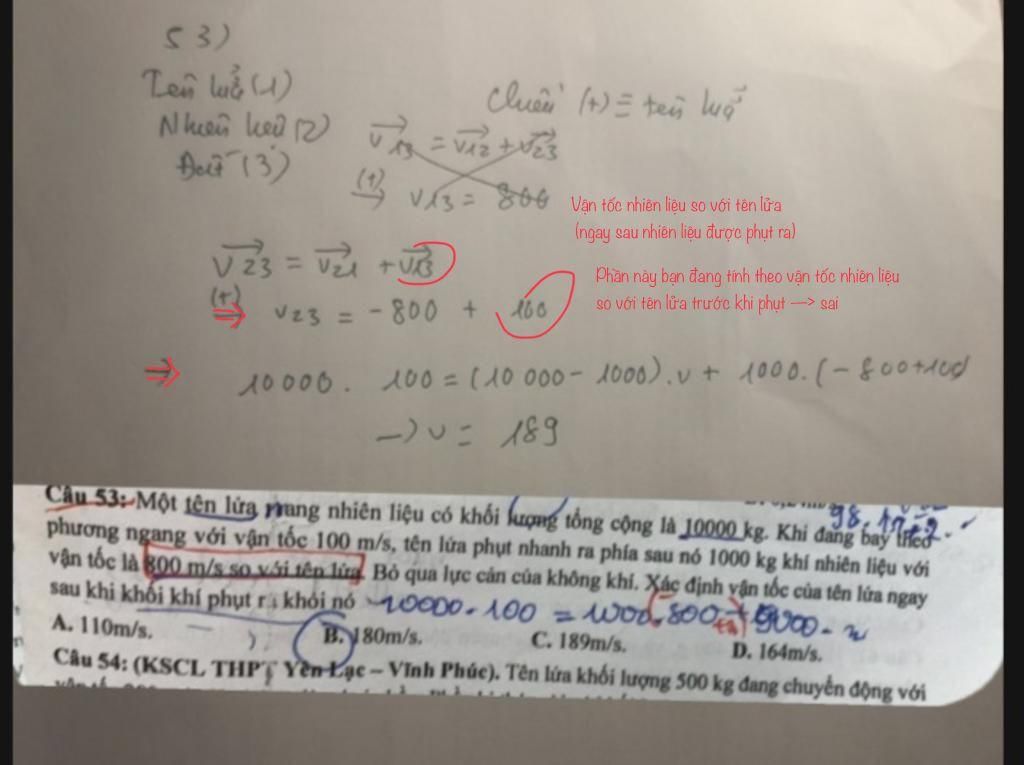 53)
Tên lửa (1)
Chiều (+) ≡ tên lửa
Nhiên liệu (2)
v13 = v12 + v23
Đất (3)
(+) → v13 = 800
Vận tốc nhiên liệu so với tên lửa
(ngay sau nhiên liệu được phụt ra)
v23 = v21 + v13
Phần này bạn đang tính theo vận tốc nhiên liệu
so với tên lửa trước khi phụt —> sai
(+) ⇒ v23 = -800 + 100
⇒ 10000. 100 = (10 000 - 1000).v + 1000.(-800+100)
→ v = 189
Câu 53: Một tên lửa mang nhiên liệu có khối lượng tổng cộng là 10000 kg. Khi đang bay theo
phương ngang với vận tốc 100 m/s, tên lửa phụt nhanh ra phía sau nó 1000 kg khí nhiên liệu với
vận tốc là 800 m/s so với tên lửa. Bỏ qua lực cản của không khí. Xác định vận tốc của tên lửa ngay
sau khi khối khí phụt ra khỏi nó
A. 110m/s. B. 180m/s. C. 189m/s. D. 164m/s.
Câu 54: (KSCL THPT Yên Lạc – Vĩnh Phúc). Tên lửa khối lượng 500 kg đang chuyển động với